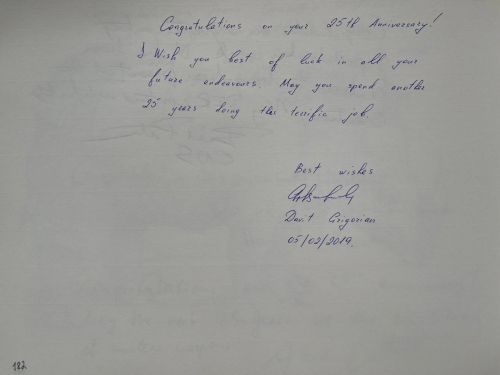 Congratulations on your 25th Anniversary!
I Wish you best of luck in all your
future endeavours. May you spend another
25 years doing this terrific job.
Best wishes
Davit Grigorian
05/02/2019.
182